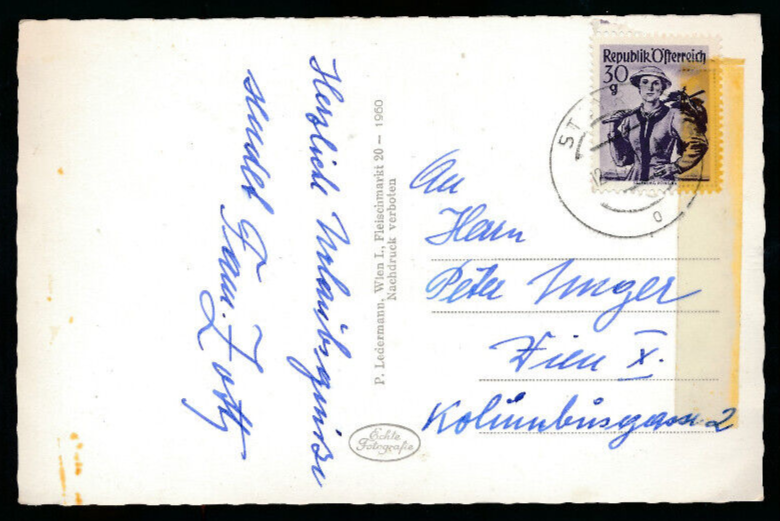 Herzliche Urlaubsgrüsse
sendet Fam. Zotty
P. Ledermann, Wien I., Fleischmarkt 20 — 1960
Nachdruck verboten
Echte
Fotografie
Republik Österreich
30
g
ST
An
Herrn
Peter Unger
Wien X.
Kolumbusgasse 2